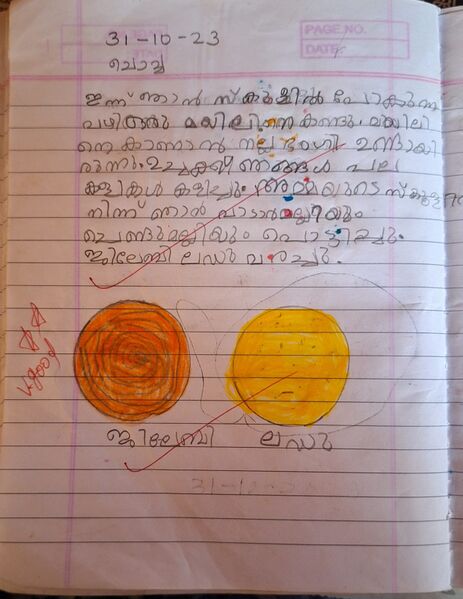 31-10-23
PAGE.NO.
DATE
ചൊവ്വ
ഇന്ന് ഞാൻ സ്കൂളിൽ പോകുന്ന
വഴി ഒരു മയിലിനെ കണ്ടു. മയിലി
നെ കാണാൻ നല്ല ഭംഗി ഉണ്ടായി
രുന്നു. ഉച്ചക്ക് ഞങ്ങൾ പല
കളികൾ കളിച്ചു. അമ്മയുടെ
നിന്ന് ഞാൻ വാടാമല്ലിയും
ചെണ്ടുമല്ലിയും പൊട്ടിച്ചു.
ജിലേബി ലഡു വരച്ചു.
v.good
ജിലേബി ലഡു